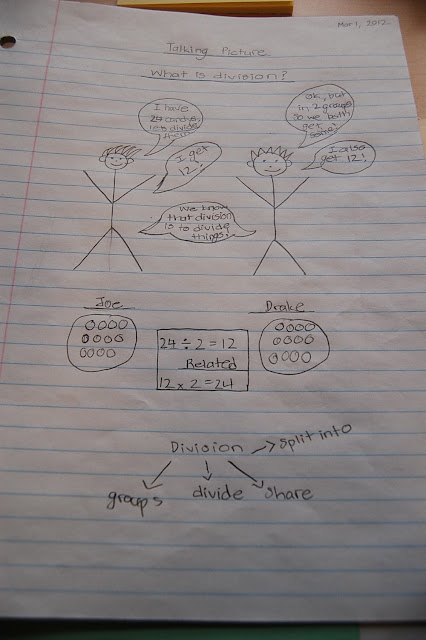 Mar 1, 2012.
Talking Picture
What is division?
I have
24 candys,
lets divide
them.
Ok, but
in 2 groups
so we both
get
some!
I get
12!
I also
get 12!
We know
that division
is to divide
things!
Joe
Drake
24 ÷ 2 = 12
Related
12 x 2 = 24
Division → Split into
groups divide share